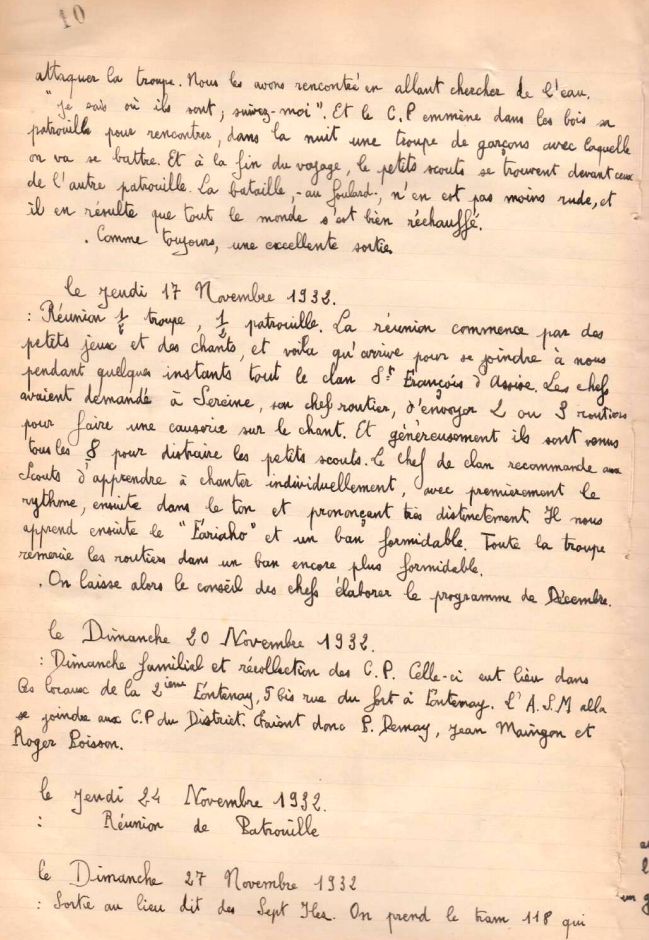 10
attaquer la troupe. Nous les avons rencontré en allant chercher de l'eau.
"Je sais où ils sont, suivez-moi". Et le C.P emmène dans les bois sa
patrouille pour rencontrer, dans la nuit une troupe de garçons avec laquelle
on va se battre. Et à la fin du voyage, le petits scouts se trouvent devant ceux
de l'autre patrouille. La bataille, -au foulard-, n'en est pas moins rude, et
il en résulte que tout le monde s'est bien réchauffé.
. Comme toujours, une excellente sortie.
le Jeudi 17 Novembre 1932.
: Réunion ½ troupe, ½ patrouille. La réunion commence par des
petits jeux et des chants, et voila qu'arrive pour se joindre à nous
pendant quelques instants tout le clan St François d'Assise. Les chefs
avaient demandé à Sereine, son chef routier, d'envoyer 2 ou 3 routiers
pour faire une causerie sur le chant. Et généreusement ils sont venus
tous les 8 pour distraire les petits scouts. le chef de clan recommande aux
Scouts d'apprendre à chanter individuellement, avec premièrement le
rythme, ensuite dans le ton et prononçant très distinctement. Il nous
apprend ensuite le "Fariaho" et un ban formidable. Toute la troupe
remercie les routiers dans un ban encore plus formidable.
. On laisse alors le conseil des chefs élaborer le programme de Décembre.
le Dimanche 20 Novembre 1932.
: Dimanche familial et récollection des C.P. Celle-ci eut lieu dans
les locaux de la 2ième Fontenay, 5 bis rue du fort à Fontenay. L'A.S.M alla
se joindre aux C.P du District. Etaient donc P. Demay, Jean Maingon et
Roger Poisson.
le Jeudi 24 Novembre 1932.
: Réunion de Patrouille
le Dimanche 27 Novembre 1932
: Sortie au lieu dit des Sept Iles. On prend le tram 118 qui